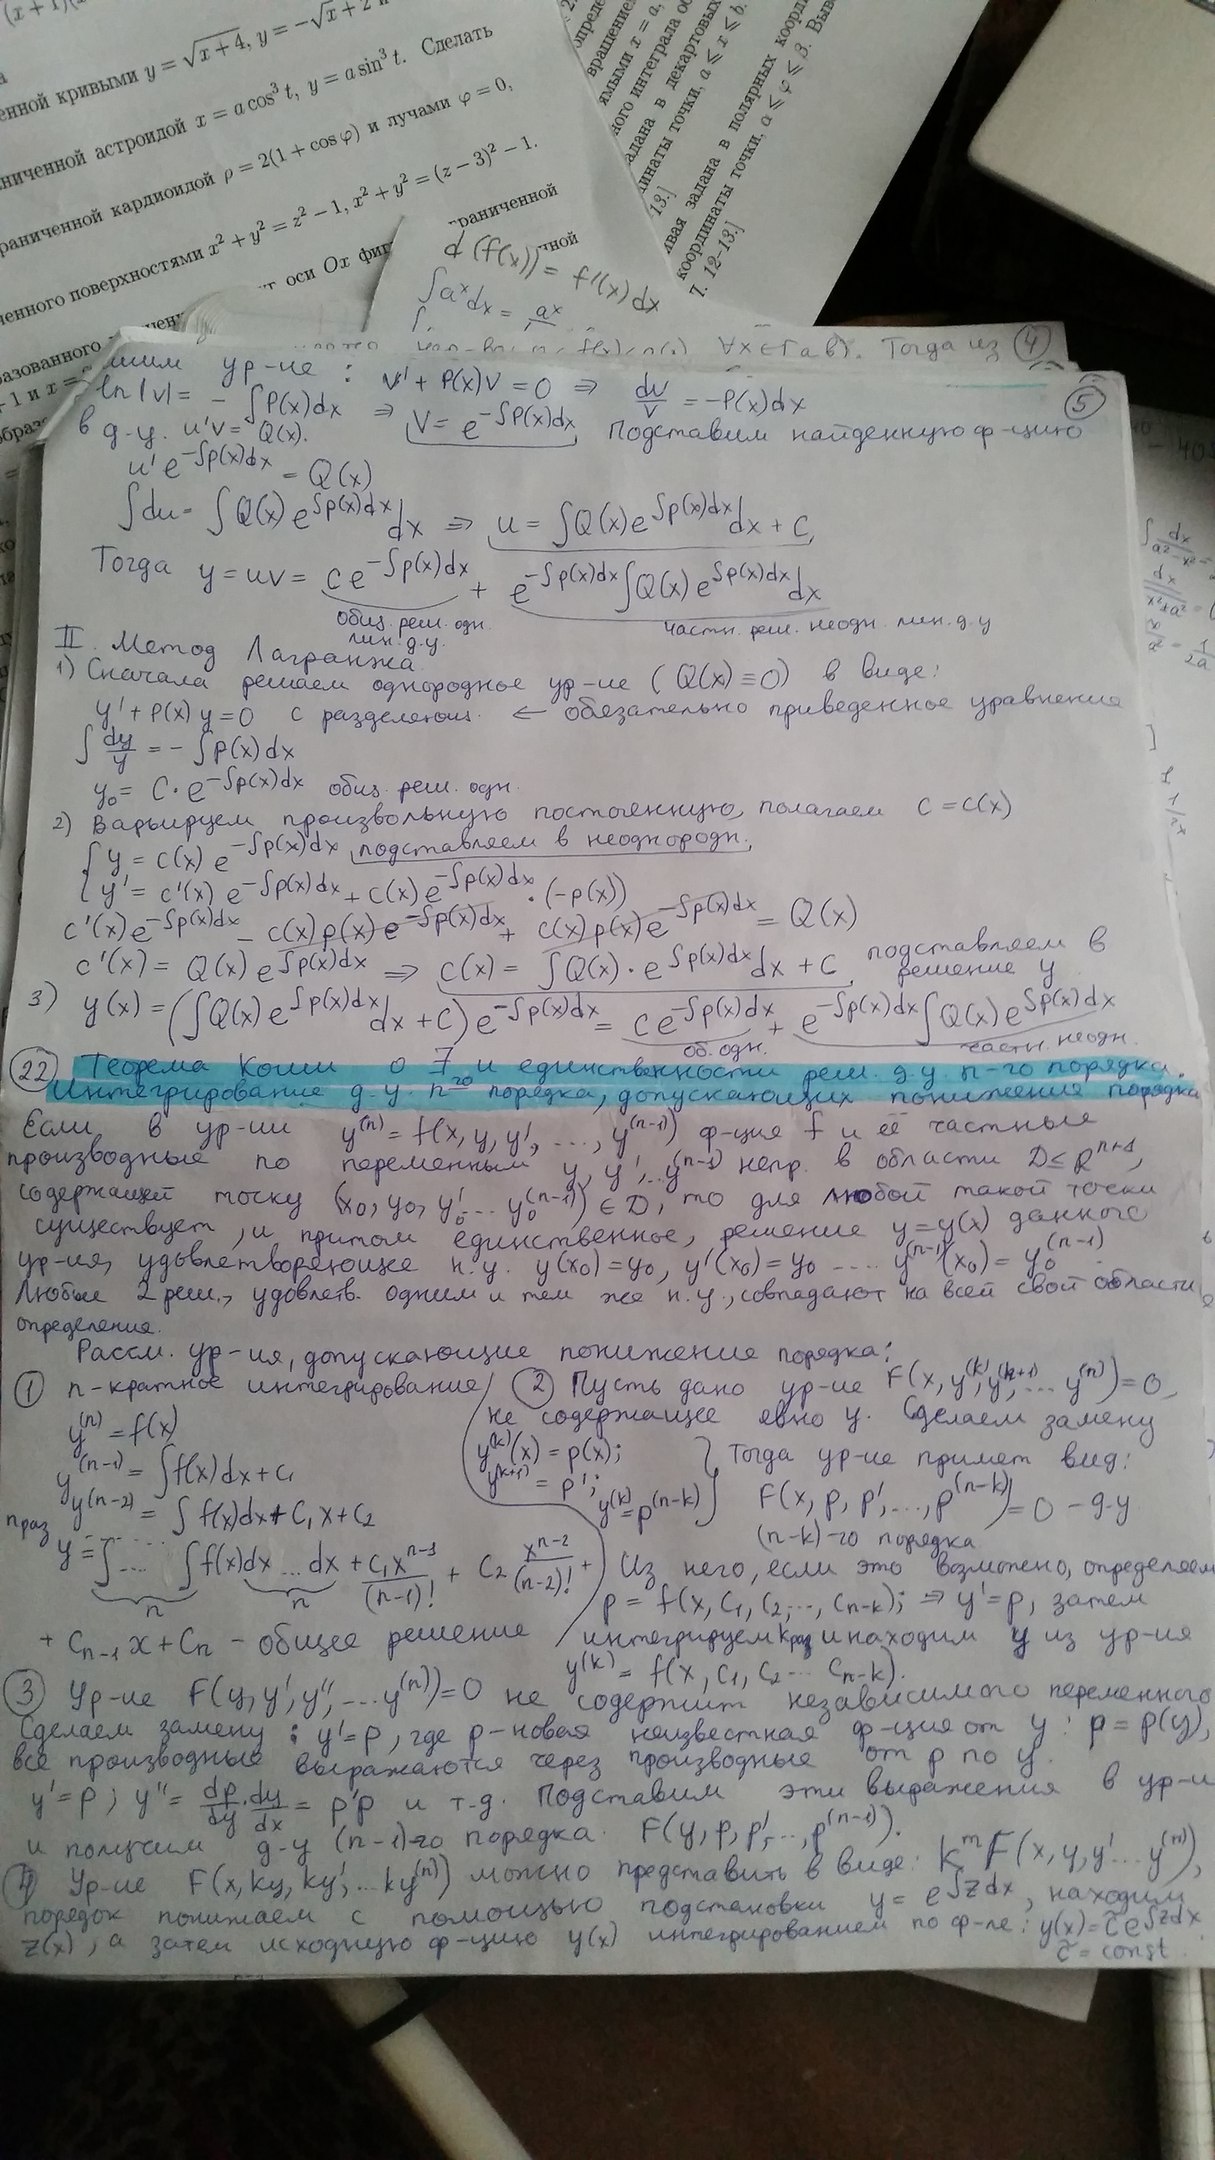 енной кривыми y = √x+4, y = −√x+2
ниченной астроидой x = a cos³ t, y = a sin³ t. Сделать
раниченной кардиоидой ρ = 2(1 + cos φ) и лучами φ = 0,
ченного поверхностями x² + y² = z² − 1, x² + y² = (z − 3)² − 1.
оси Ox фиг
раниченной
вращением
ямыми x = a,
ного интеграла
адана в декартовых
динаты точки, a ≤ x ≤ b.
13.]
ивая задана в полярных коорди
координаты точки, a ≤ φ ≤ β. Выв
7. 12–13.]
d(f(x)) = f'(x)dx
∫aˣdx = aˣ
∀x∈[a b). Тогда из ④
шим ур-ие : v' + P(x)v = 0 ⇒ dv/v = −P(x)dx ⑤
ln|v| = − ∫P(x)dx ⇒ V = e^(−∫P(x)dx) Подставим найденную ф-цию
в д.у. u'v = Q(x).
u' e^(−∫p(x)dx) = Q(x)
∫du = ∫Q(x) e^(∫p(x)dx) dx ⇒ u = ∫Q(x) e^(∫p(x)dx) dx + C,
Тогда y = uv = c e^(−∫p(x)dx) + e^(−∫p(x)dx) ∫Q(x) e^(∫p(x)dx) dx
общ. реш. одн. лин. д.у. частн. реш. неодн. лин. д.у
II. Метод Лагранжа.
1) Сначала решаем однородное ур-ие (Q(x) ≡ 0) в виде:
y' + p(x) y = 0 с разделяющ. ← обязательно приведенное уравнение
∫ dy/y = − ∫p(x)dx
y₀ = C · e^(−∫p(x)dx) общ. реш. одн.
2) Варьируем произвольную постоянную, полагаем c = c(x)
{ y = c(x) e^(−∫p(x)dx) подставляем в неоднородн.
y' = c'(x) e^(−∫p(x)dx) + c(x) e^(−∫p(x)dx) · (−p(x))
c'(x) e^(−∫p(x)dx) − c(x) p(x) e^(−∫p(x)dx) + c(x) p(x) e^(−∫p(x)dx) = Q(x)
c'(x) = Q(x) e^(∫p(x)dx) ⇒ c(x) = ∫Q(x) · e^(∫p(x)dx) dx + C подставляем в решение y
3) y(x) = (∫Q(x) e^(∫p(x)dx) dx + C) e^(−∫p(x)dx) = c e^(−∫p(x)dx) + e^(−∫p(x)dx) ∫Q(x) e^(∫p(x)dx)
об. одн. частн. неодн.
㉒ Теорема Коши о ∃ и единственности реш. д.у. n-го порядка.
Интегрирование д.у. nго порядка, допускающих понижение порядка
Если в ур-ии y⁽ⁿ⁾ = f(x, y, y', ..., y⁽ⁿ⁻¹⁾) ф-ция f и её частные
производные по переменным y, y', .. y⁽ⁿ⁻¹⁾ непр. в области D ⊆ Rⁿ⁺¹,
содержащей точку (x₀, y₀, y₀' ... y₀⁽ⁿ⁻¹⁾) ∈ D, то для любой такой точки
существует, и притом единственное, решение y = y(x) данного
ур-ия, удовлетворяющее н.у. y(x₀) = y₀, y'(x₀) = y₀ .... y⁽ⁿ⁻¹⁾(x₀) = y₀⁽ⁿ⁻¹⁾
Любые 2 реш., удовлетв. одним и тем же н.у., совпадают на всей своей области
определения.
Рассм. ур-ия, допускающие понижение порядка:
① n-кратное интегрирование
y⁽ⁿ⁾ = f(x)
y⁽ⁿ⁻¹⁾ = ∫f(x)dx + C₁
y⁽ⁿ⁻²⁾ = ∫ f(x)dx + C₁x + C₂
n раз .......
y = ∫ .... ∫ f(x)dx ... dx + C₁xⁿ⁻¹/(n−1)! + C₂ xⁿ⁻²/(n−2)! +
n n
+ Cₙ₋₁ x + Cₙ – общее решение
② Пусть дано ур-ие F(x, y⁽ᵏ⁾, y⁽ᵏ⁺¹⁾, ... y⁽ⁿ⁾) = 0,
не содержащее явно y. Сделаем замену
y⁽ᵏ⁾(x) = p(x); } Тогда ур-ие примет вид:
y⁽ᵏ⁺¹⁾ = p'; y⁽ᵏ⁾ = p⁽ⁿ⁻ᵏ⁾ F(x, p, p', ..., p⁽ⁿ⁻ᵏ⁾) = 0 – д.у
(n−k)-го порядка
Из него, если это возможно, определяем
p = f(x, C₁, C₂, ..., Cₙ₋ₖ); ⇒ y' = p, затем
интегрируем k раз и находим y из ур-ия
y⁽ᵏ⁾ = f(x, C₁, C₂ ... Cₙ₋ₖ).
③ Ур-ие F(y, y', y'', ... y⁽ⁿ⁾) = 0 не содержит независимого переменного
Сделаем замену : y' = p, где p – новая неизвестная ф-ция от y : p = p(y),
все производные выражаются через производные от p по y.
y' = p ; y'' = dp/dy · dy/dx = p'p и т.д. Подставим эти выражения в ур-и
и получим д-у (n−1)-го порядка. F(y, p, p', .., p⁽ⁿ⁻¹⁾).
④ Ур-ие F(x, ky, ky', ... ky⁽ⁿ⁾) можно представить в виде: kᵐ F(x, y, y' ... y⁽ⁿ⁾),
порядок понижаем с помощью подстановки y = e^(∫zdx), находим
z(x), а затем исходную ф-цию y(x) интегрированием по ф-ле: y(x) = c̃ e^(∫zdx)
c̃ = const.